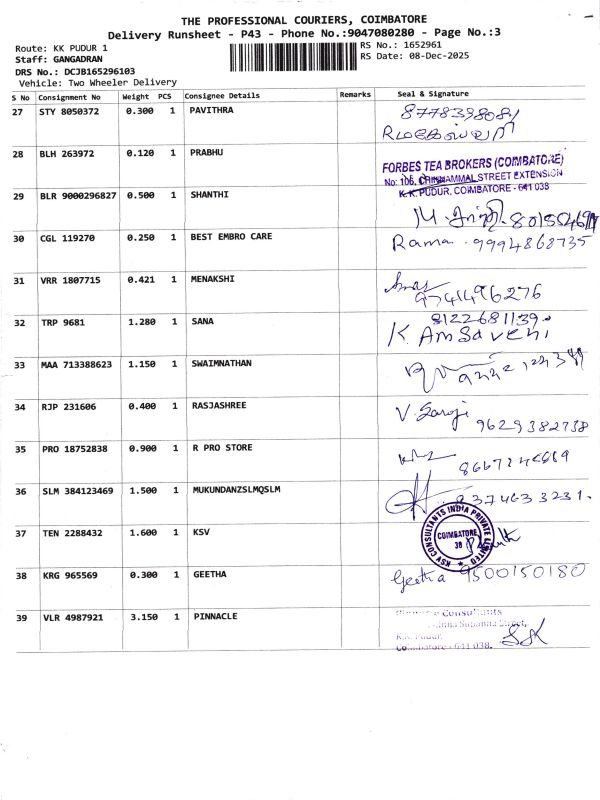 THE PROFESSIONAL COURIERS, COIMBATORE
Delivery Runsheet - P43 - Phone No.:9047080280 - Page No.:3
Route: KK PUDUR 1
RS No.: 1652961
Staff: GANGADRAN
RS Date: 08-Dec-2025
DRS No.: DCJB165296103
Vehicle: Two Wheeler Delivery
S No Consignment No Weight PCS Consignee Details Remarks Seal & Signature
27 STY 8050372 0.300 1 PAVITHRA 8778398081
28 BLH 263972 0.120 1 PRABHU FORBES TEA BROKERS (COIMBATORE)
No: 106, STREET EXTENSION
K.K. PUDUR, COIMBATORE - 641 038
29 BLR 9000296827 0.500 1 SHANTHI
30 CGL 119270 0.250 1 BEST EMBRO CARE Rama - 9994868735
31 VRR 1807715 0.421 1 MENAKSHI 9741496276
32 TRP 9681 1.280 1 SANA 8122681139
K. Amsaveni
33 MAA 713388623 1.150 1 SWAIMNATHAN
34 RJP 231606 0.400 1 RASJASHREE V. Saroji
9629382738
35 PRO 18752838 0.900 1 R PRO STORE
36 SLM 384123469 1.500 1 MUKUNDANZSLMQSLM 8374633231.
37 TEN 2288432 1.600 1 KSV KSV CONSULTANTS INDIA PRIVATE LIMITED
COIMBATORE
38
38 KRG 965569 0.300 1 GEETHA Geetha 9500150180
39 VLR 4987921 3.150 1 PINNACLE Consultants
Subanna Street,
K.K. Pudur,
Coimbatore - 641 038.